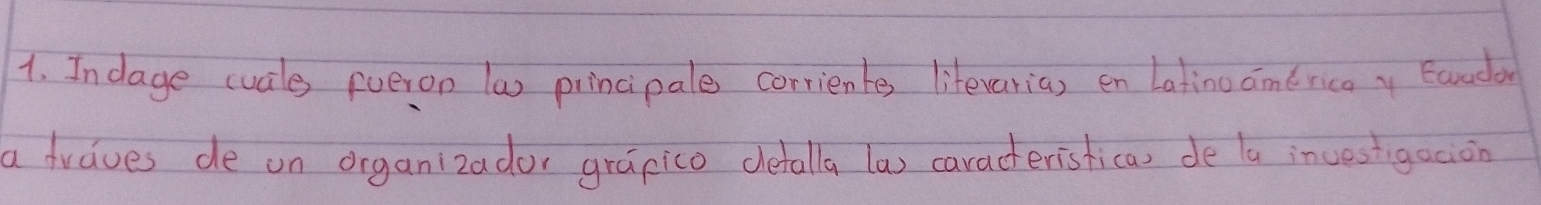 1. Indage cuales fueron las principales corrientes literarias en Latinoámérica y Ecuador
a tráves de un organizador gráfico detalla las características de la investigación